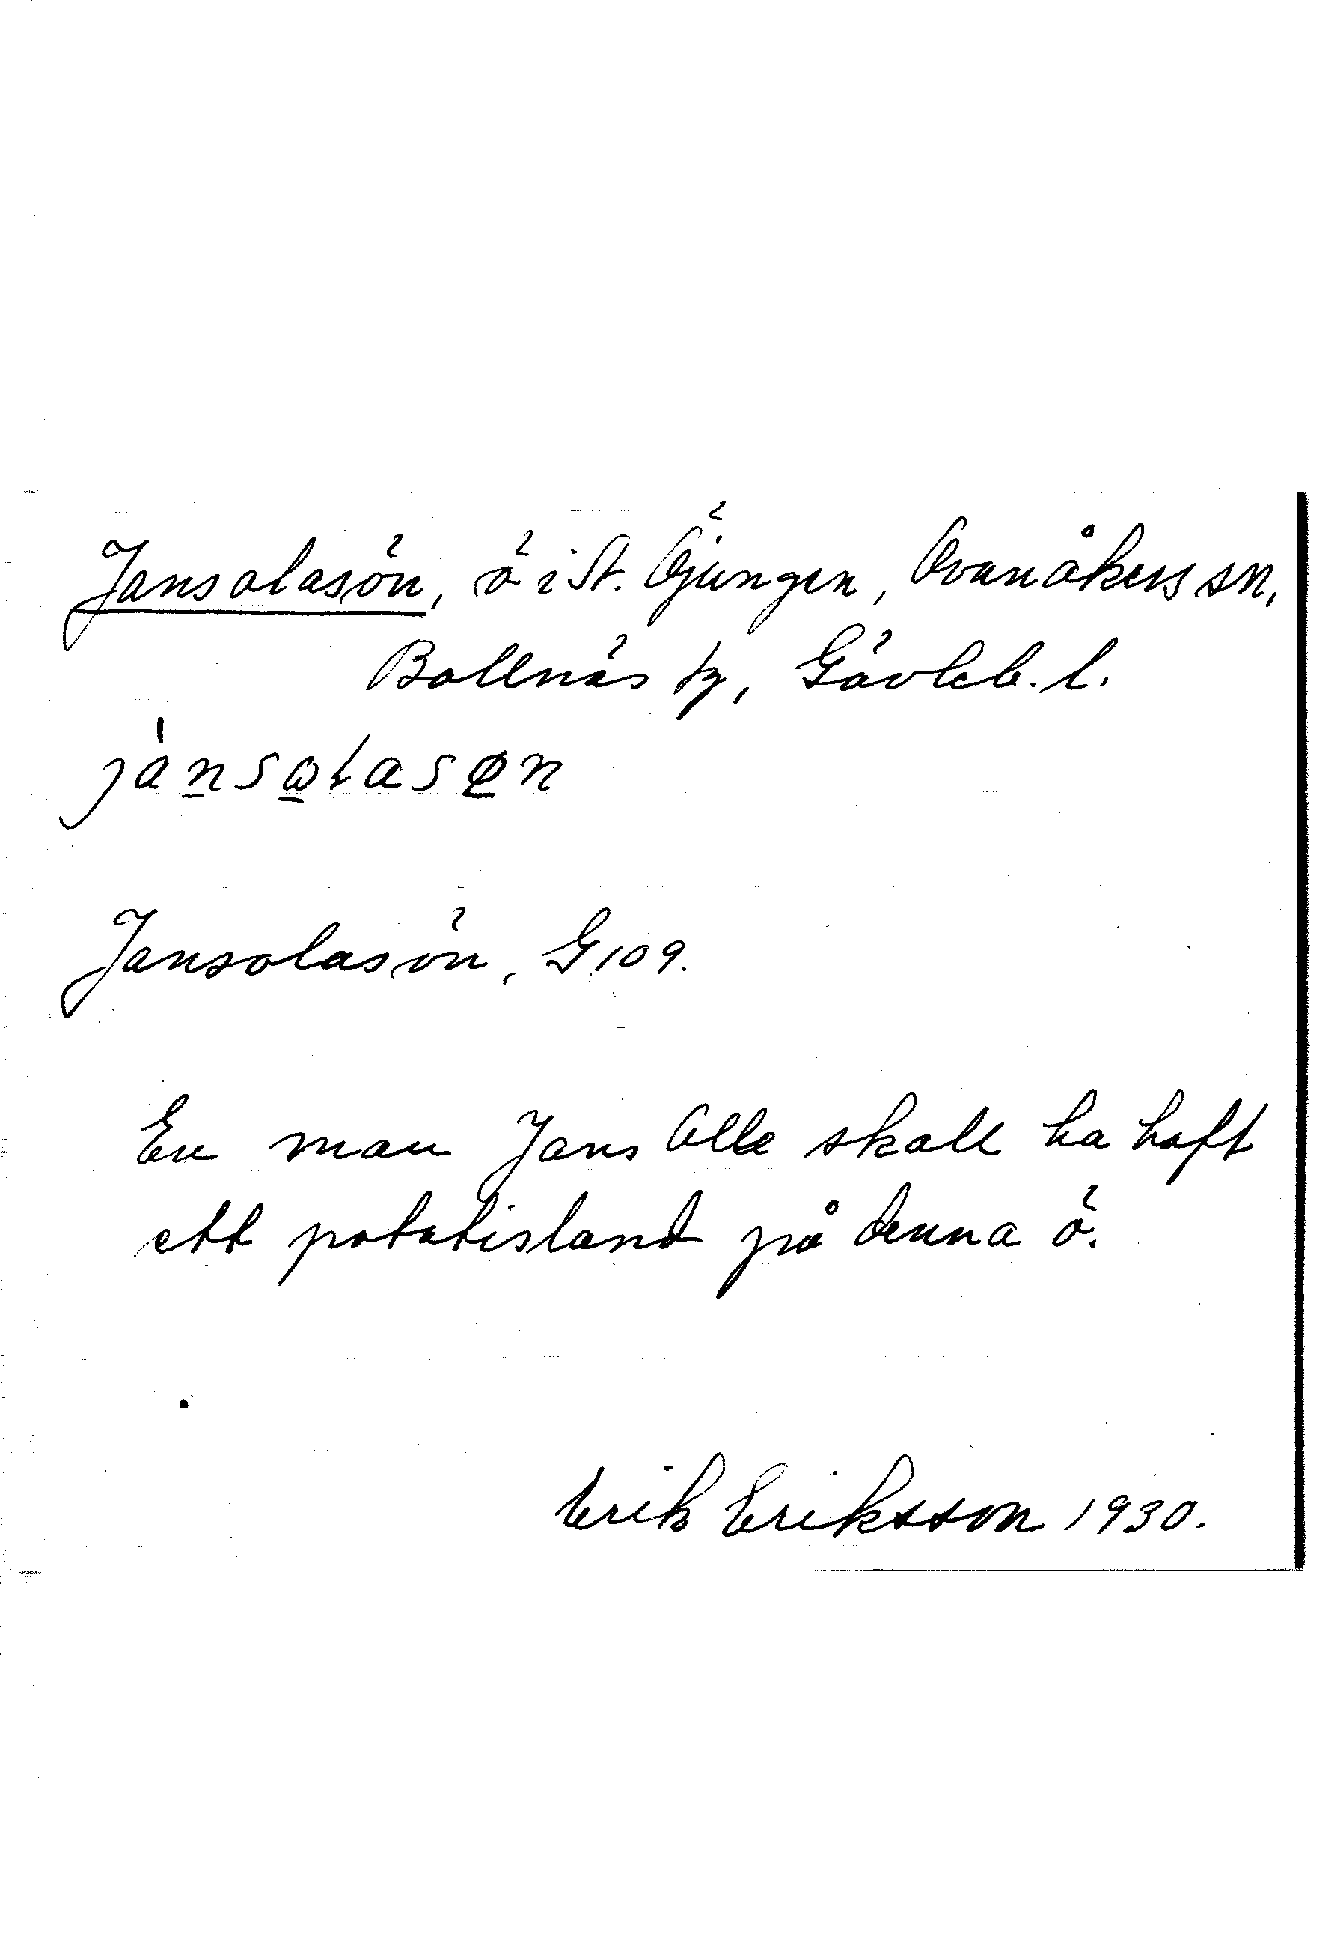 Jansolasön, ö i St. Öjungen, Ovanåkers sn,
Bollnäs tg, Gävleb. l.
jánsωlasøn
Jansolasön, G 109.
En man Jans Olle skall ha haft
ett potatisland på denna ö.
Erik Eriksson 1930.